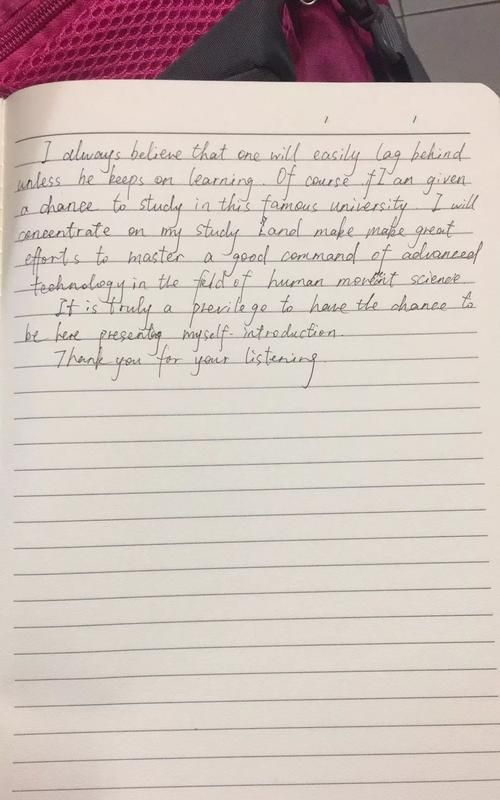 I always believe that one will easily lag behind
unless he keeps on learning. Of course if I an given
a chance to study in this famous university. I will
concentrate on my study and make make great
efforts to master a good command of advanced
technology in the field of human movement science
It is truly a previlege to have the chance to
be here presenting myself-introduction.
Thank you for your listening.